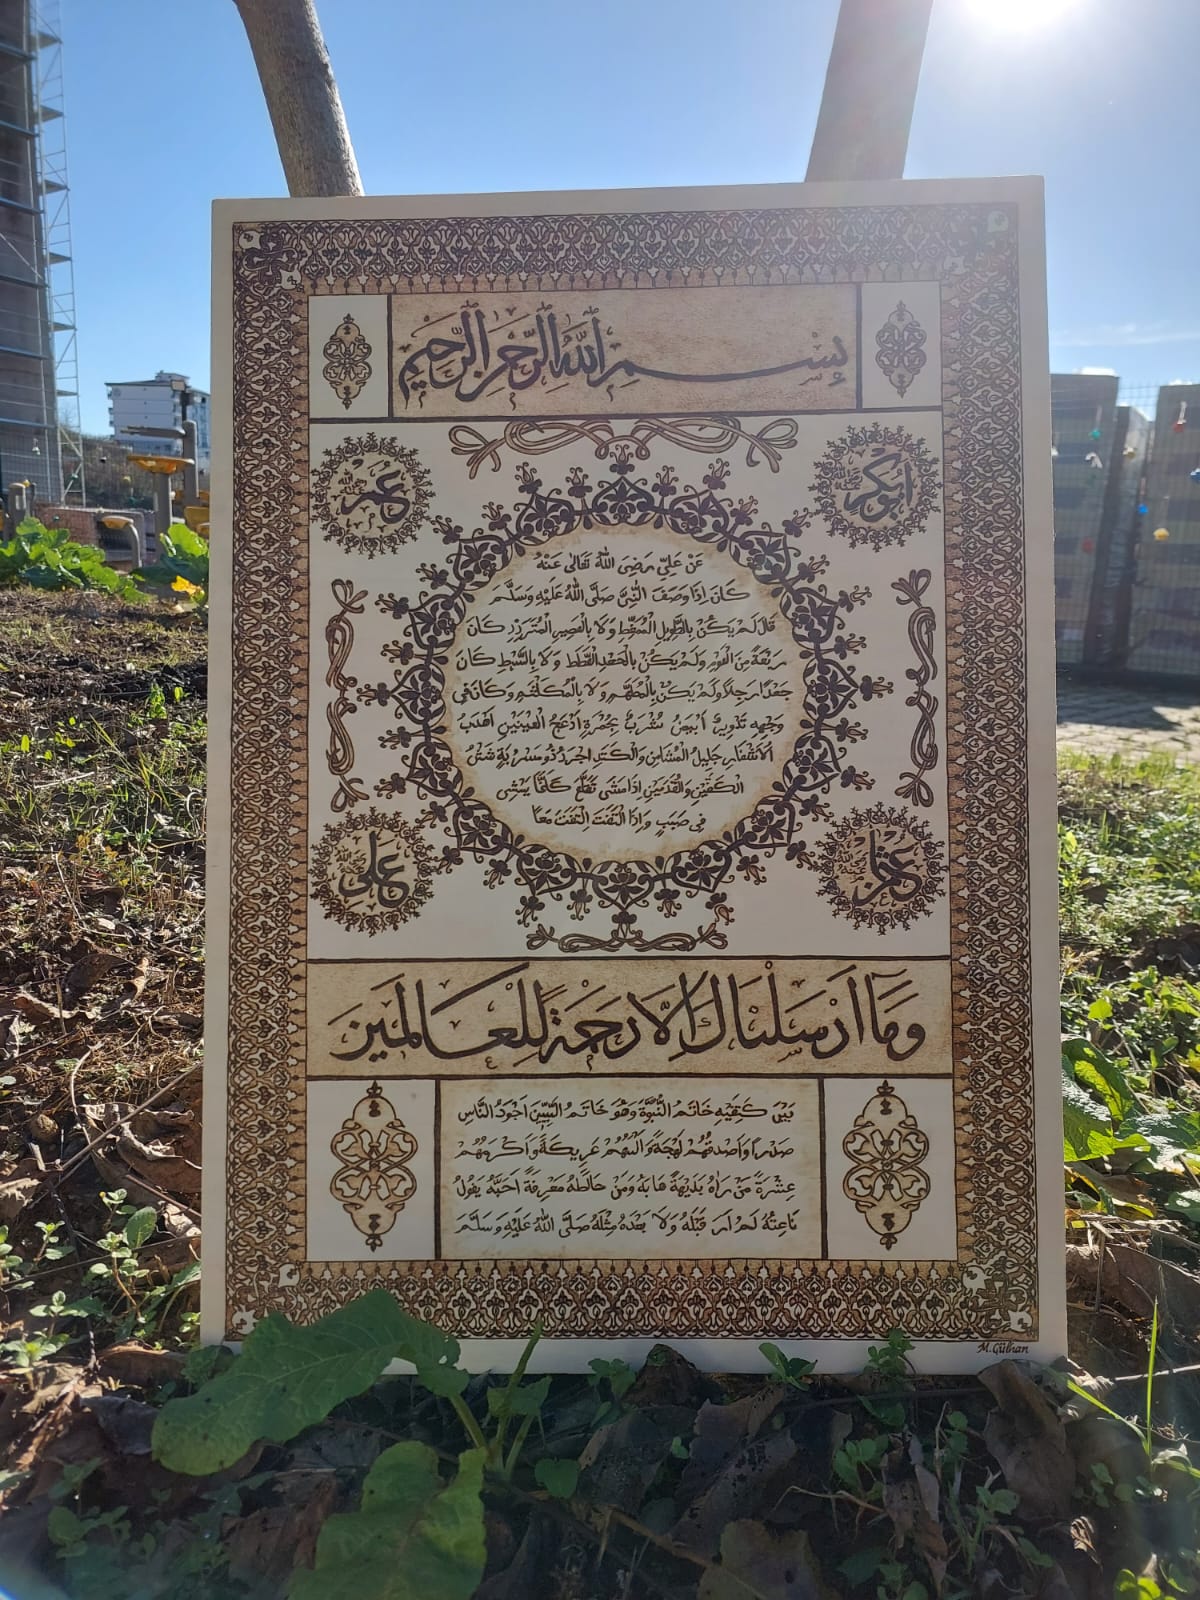 بِسْمِ اللّٰهِ الرَّحْمٰنِ الرَّحِيمِ
اَبُو بَكْر
عُمَر
عَنْ عَلِيٍّ رَضِىَ اللّٰهُ تَعَالٰى عَنْهُ
كَانَ اِذَا وَصَفَ النَّبِىَّ صَلَّى اللّٰهُ عَلَيْهِ وَسَلَّمَ
قَالَ لَمْ يَكُنْ بِالطَّوِيلِ الْمُمَغَّطِ وَلَا بِالْقَصِيرِ الْمُتَرَدِّدِ كَانَ
رَبْعَةً مِنَ الْقَوْمِ وَلَمْ يَكُنْ بِالْجَعْدِ الْقَطَطِ وَلَا بِالسَّبْطِ كَانَ
جَعْدًا رَجِلًا وَلَمْ يَكُنْ بِالْمُطَهَّمِ وَلَا بِالْمُكَلْثَمِ وَكَانَ فِى
وَجْهِهِ تَدْوِيرٌ اَبْيَضُ مُشْرَبٌ اَدْعَجُ الْعَيْنَيْنِ اَهْدَبُ
الْاَشْفَارِ جَلِيلُ الْمُشَاشِ وَالْكَتَدِ اَجْرَدُ ذُو مَسْرُبَةٍ شَثْنُ
الْكَفَّيْنِ وَالْقَدَمَيْنِ اِذَا مَشٰى تَقَلَّعَ كَاَنَّمَا يَمْشِى
فِى صَبَبٍ وَاِذَا الْتَفَتَ الْتَفَتَ مَعًا
عُثْمَان
عَلِى
وَمَا اَرْسَلْنَاكَ اِلَّا رَحْمَةً لِلْعَالَمِينَ
بَيْنَ كَتِفَيْهِ خَاتَمُ النُّبُوَّةِ وَهُوَ خَاتَمُ النَّبِيِّينَ اَجْوَدُ النَّاسِ
صَدْرًا وَاَصْدَقُهُمْ لَهْجَةً وَاَلْيَنُهُمْ عَرِيكَةً وَاَكْرَمُهُمْ
عِشْرَةً مَنْ رَاٰهُ بَدِيهَةً هَابَهُ وَمَنْ خَالَطَهُ مَعْرِفَةً اَحَبَّهُ يَقُولُ
نَاعِتُهُ لَمْ اَرَ قَبْلَهُ وَلَا بَعْدَهُ مِثْلَهُ صَلَّى اللّٰهُ عَلَيْهِ وَسَلَّمَ
M. Gülhan